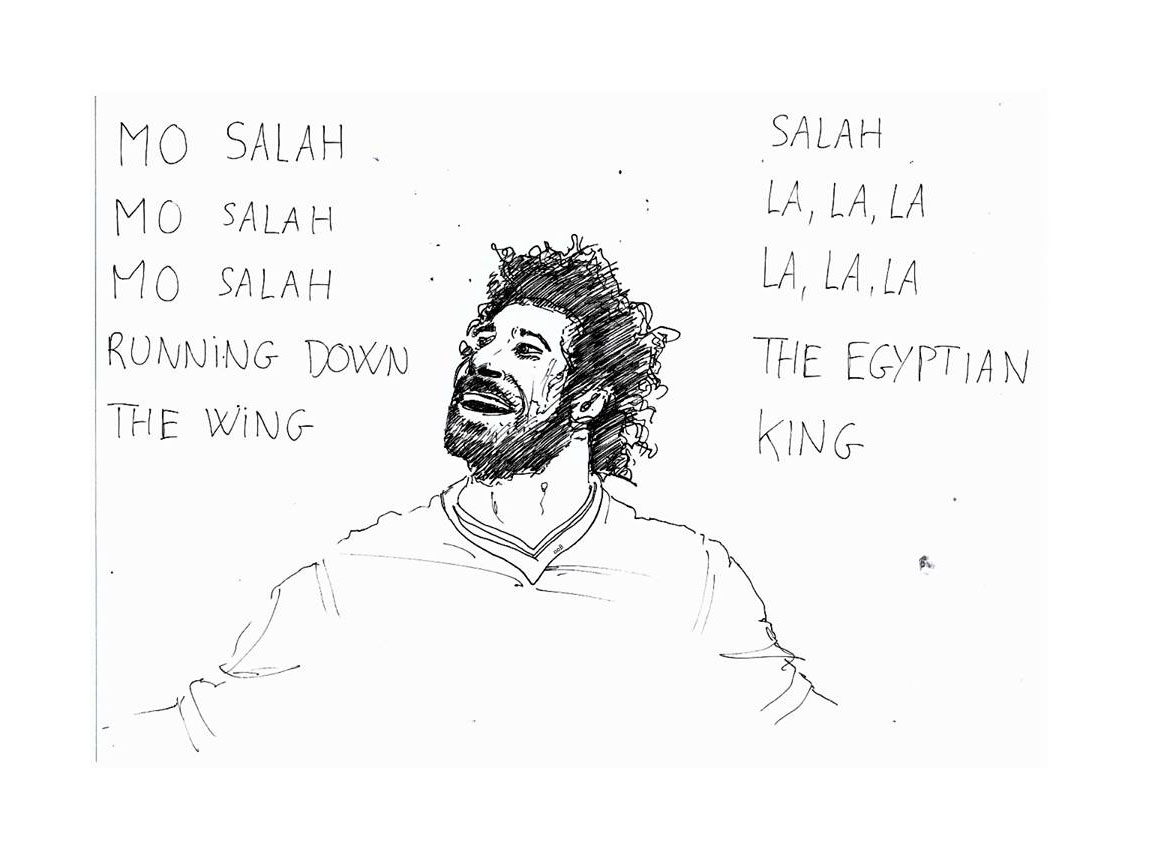 MO SALAH
MO SALAH
MO SALAH
RUNNiNG DOWN
THE WiNG
SALAH
LA, LA, LA
LA, LA, LA
THE EGYPTIAN
KING